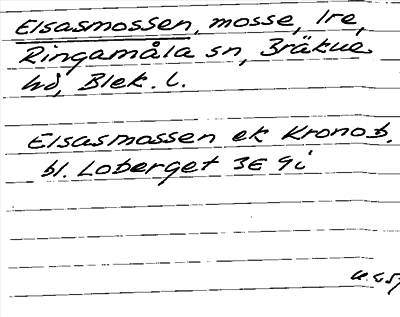 Elsasmossen, mosse, Ire,
Ringamåla sn, Bräkne
hd, Blek. l.
Elsasmossen ek Kronob.
bl. Loberget 3E 9i